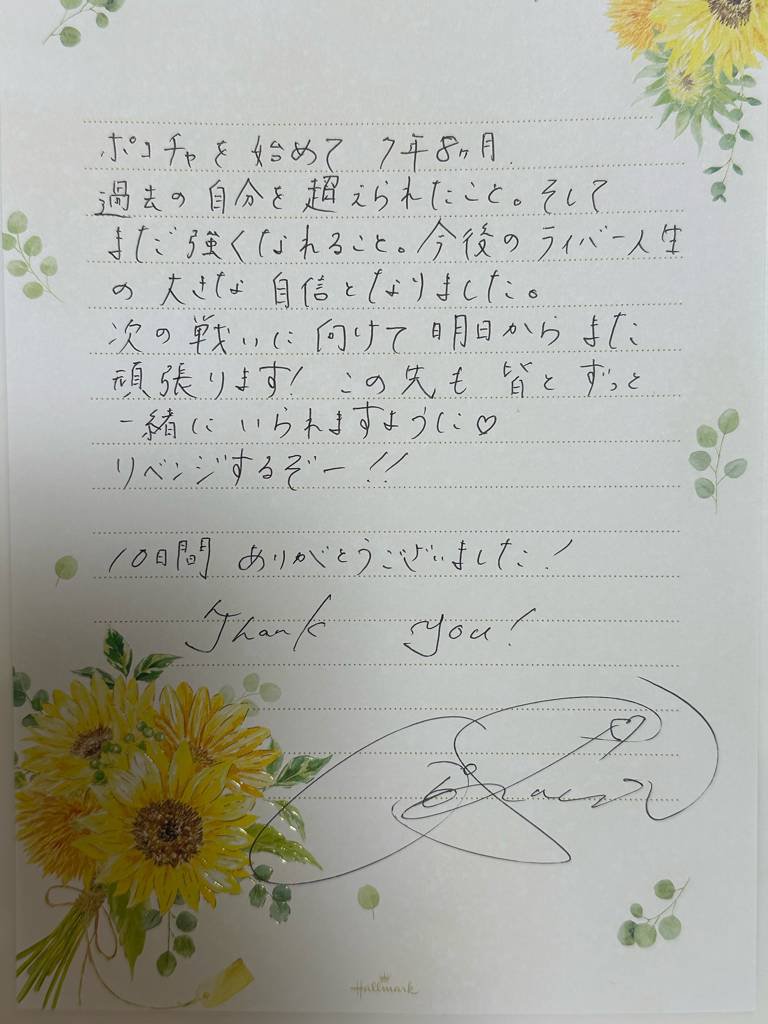 ポコチャを始めて 7年8ヶ月.
過去の自分を超えられたこと。そして
まだ強くなれること。今後のライバー人生
の大きな自信となりました。
次の戦いに向けて明日からまた
頑張ります! この先も皆とずっと
一緒にいられますように♡
リベンジするぞー!!
10日間 ありがとうございました!
Thank you!
Hallmark